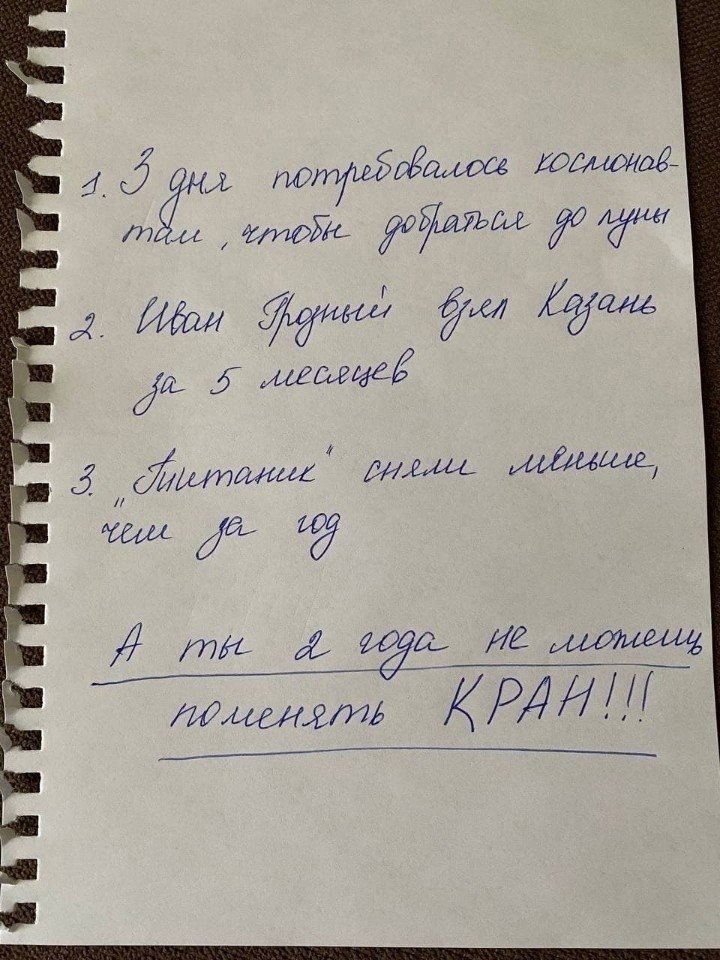 1. 3 дня потребовалось космонав-
там, чтобы добраться до луны
2. Иван Грозный взял Казань
за 5 месяцев
3. „Титаник“ сняли меньше,
чем за год
А ты 2 года не можешь
поменять КРАН!!!